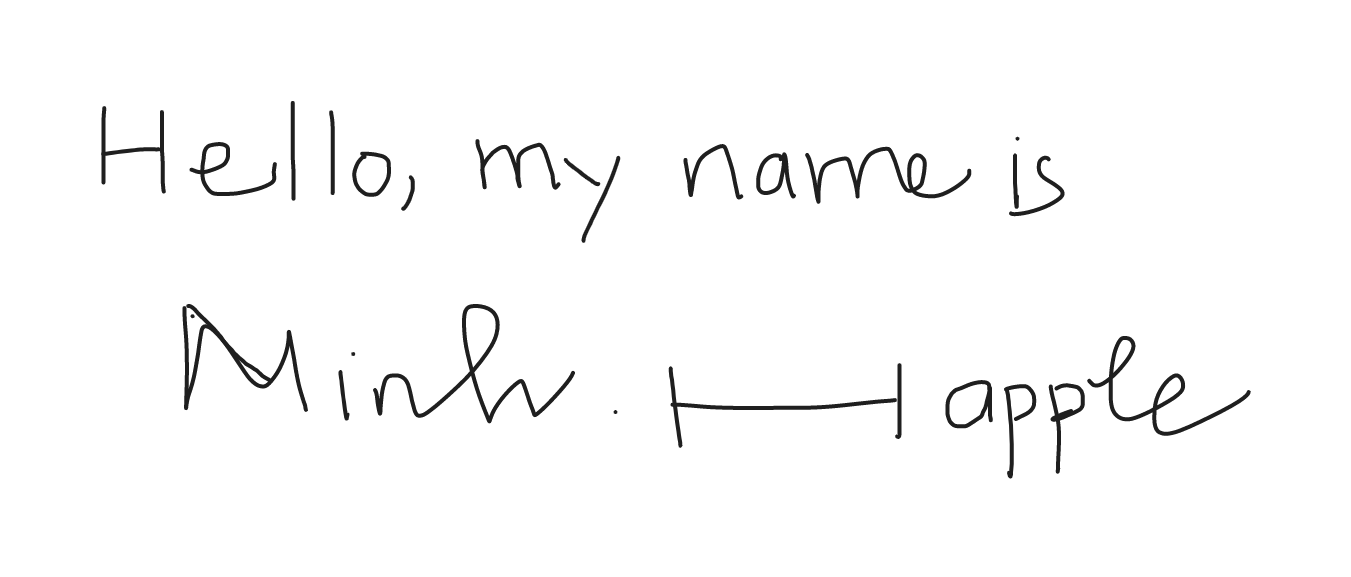 Hello, my name is
Minh. apple